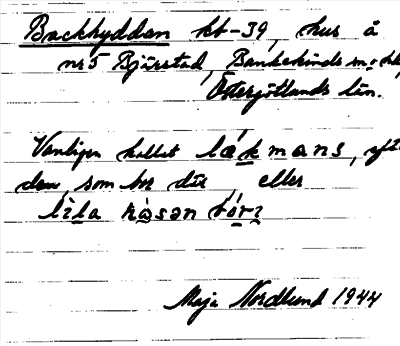 Backhyddan kt-39, hus å
nr 5 Bjärstad, Bankekinds sn o. hd,
Östergötlands län.
Vanligen kallat läkmans, eft
den, som bor där, eller
lila kåsən tóri
Maja Nordlund 1944